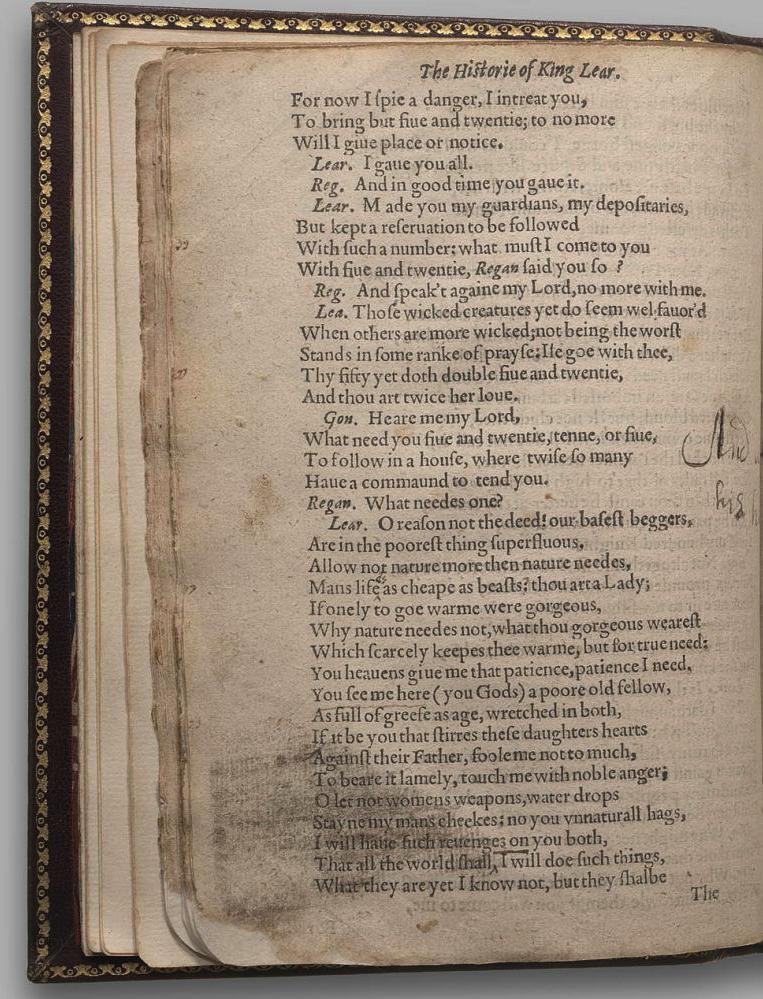 The Hiſtorie of King Lear.
For now I ſpie a danger, I intreat you,
To bring but fiue and twentie; to no more
Will I giue place or notice.
Lear. I gaue you all.
Reg. And in good time you gaue it.
Lear. M ade you my guardians, my depoſitaries,
But kept a reſeruation to be followed
With ſuch a number: what muſt I come to you
With fiue and twentie, Regan ſaid you ſo ?
Reg. And ſpeak't againe my Lord, no more with me.
Lea. Thoſe wicked creatures yet do ſeem wel fauor'd
When others are more wicked; not being the worſt
Stands in ſome ranke of prayſe: Ile goe with thee,
Thy fifty yet doth double fiue and twentie,
And thou art twice her loue.
Gon. Heare me my Lord,
What need you fiue and twentie, tenne, or fiue,
To follow in a houſe, where twiſe ſo many
Haue a commaund to tend you.
Regan. What needes one?
Lear. O reaſon not the deed! our baſeſt beggers,
Are in the pooreſt thing ſuperfluous,
Allow not nature more then nature needes,
Mans life as cheape as beaſts? thou art a Lady;
If onely to goe warme were gorgeous,
Why nature needes not, what thou gorgeous weareſt
Which ſcarcely keepes thee warme, but for true need:
You heauens giue me that patience, patience I need,
You ſee me here ( you Gods ) a poore old fellow,
As full of greefe as age, wretched in both,
If it be you that ſtirres theſe daughters hearts
Againſt their Father, foole me not to much,
To beare it lamely, touch me with noble anger;
O let not womens weapons, water drops
Stayne my mans cheekes: no you vnnaturall hags,
I will haue ſuch reuenges on you both,
That all the world ſhall, I will doe ſuch things,
What they are yet I know not, but they ſhalbe
The
And
his